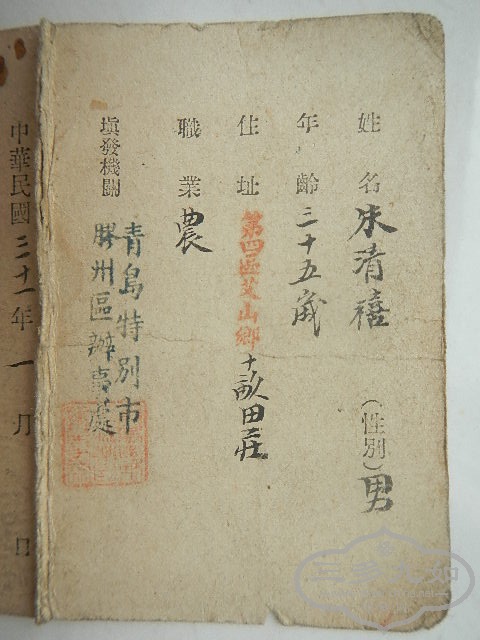 姓名 朱清禧 （性別）男
年齡 三十五歲
住址 第四區艾山鄉十畝田莊
職業 農
填發機關 青島特別市
膠州區辦事處
中華民國三十一年一月 日